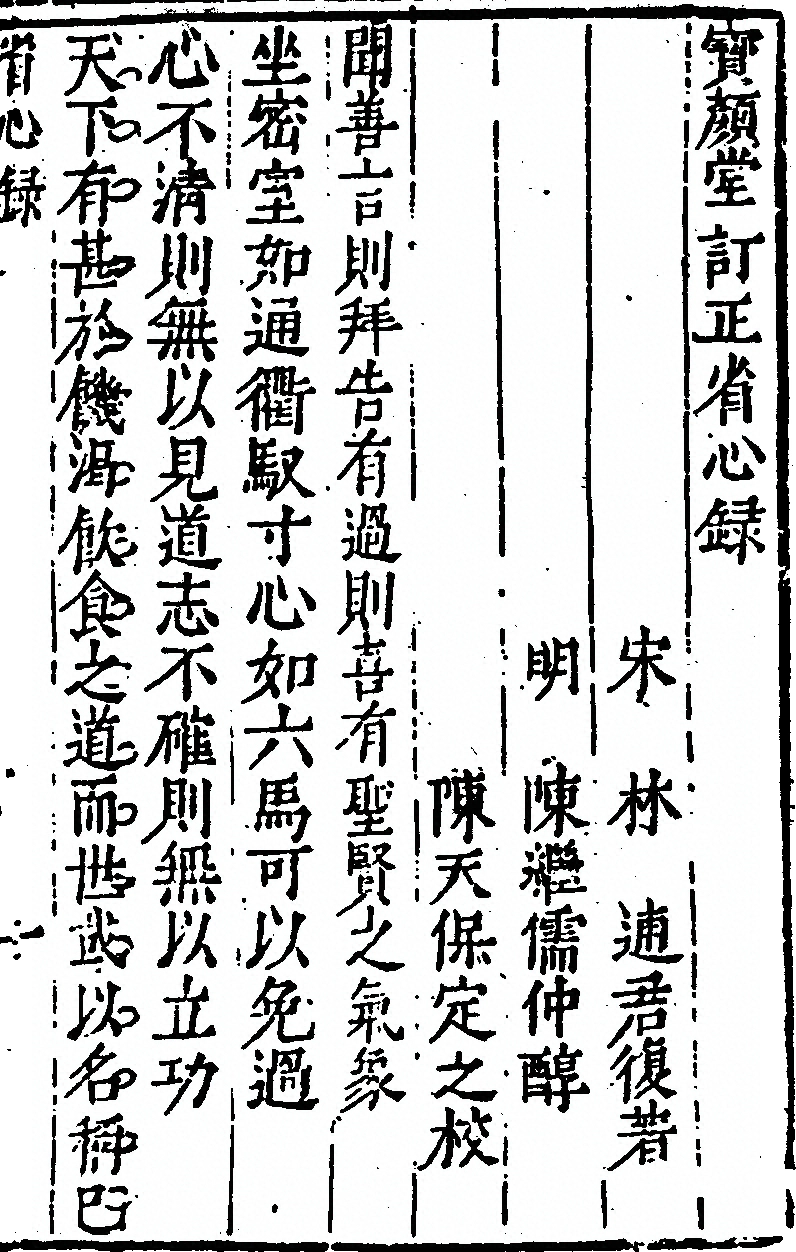 寶顏堂訂正省心録
宋 林 逋君復著
明 陳繼儒仲醇
陳天保定之校
聞善言則拜告有過則喜有聖賢之氣象
坐密室如通衢馭寸心如六馬可以免過
心不清則無以見道志不確則無以立功
天下有甚於饑渴飲食之道而世或以名稱
省心録 一